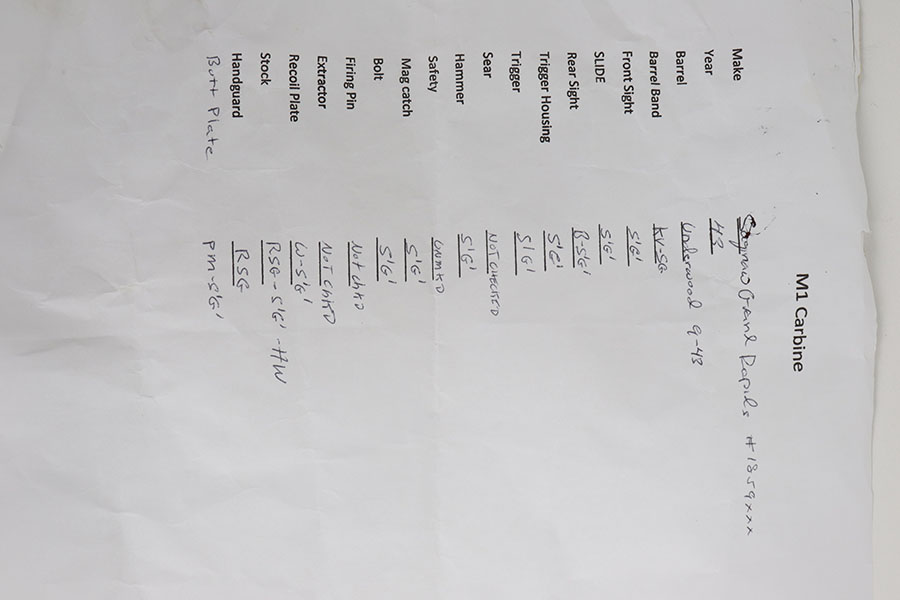 M1 Carbine
Make Saginaw Grand Rapids #1359xxx
Year 43
Barrel Underwood 9-43
Barrel Band KV-SG
Front Sight S'G'
SLIDE S'G'
Rear Sight B-S'G'
Trigger Housing S'G'
Trigger S'G'
Sear NOT CHECKED
Hammer S'G'
Safety UNMKD
Mag catch S'G'
Bolt S'G'
Firing Pin Not chKD
Extractor NOT chKD
Recoil Plate W-S'G'
Stock RSG-S'G'-HW
Handguard RSG
Butt Plate PM-S'G'